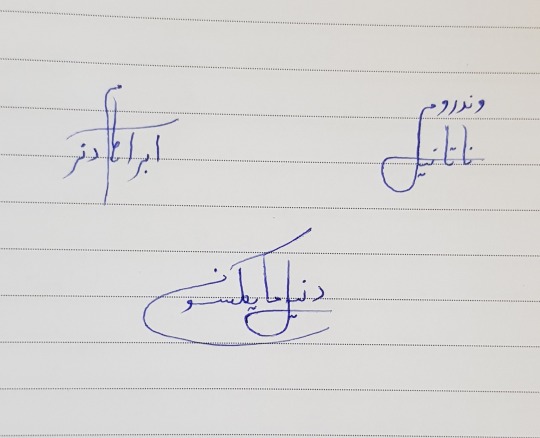 وندروم
ناتانیل
ابراهام دنر
دنیل مایکلسون